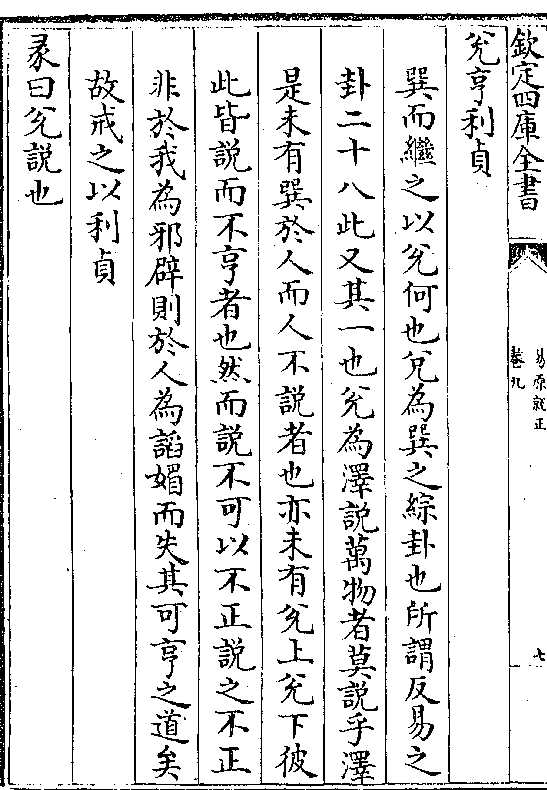 欽定四庫全書
易原就正
卷九
七
兊亨利貞
巽而繼之以兊何也兊為巽之綜卦也所謂反易之
卦二十八此又其一也兊為澤說萬物者莫說乎澤
是未有巽於人而人不說者也亦未有兊上兊下彼
此皆說而不亨者也然而說不可以不正說之不正
非於我為邪辟則於人為謟媚而失其可亨之道矣
故戒之以利貞
彖曰兊說也